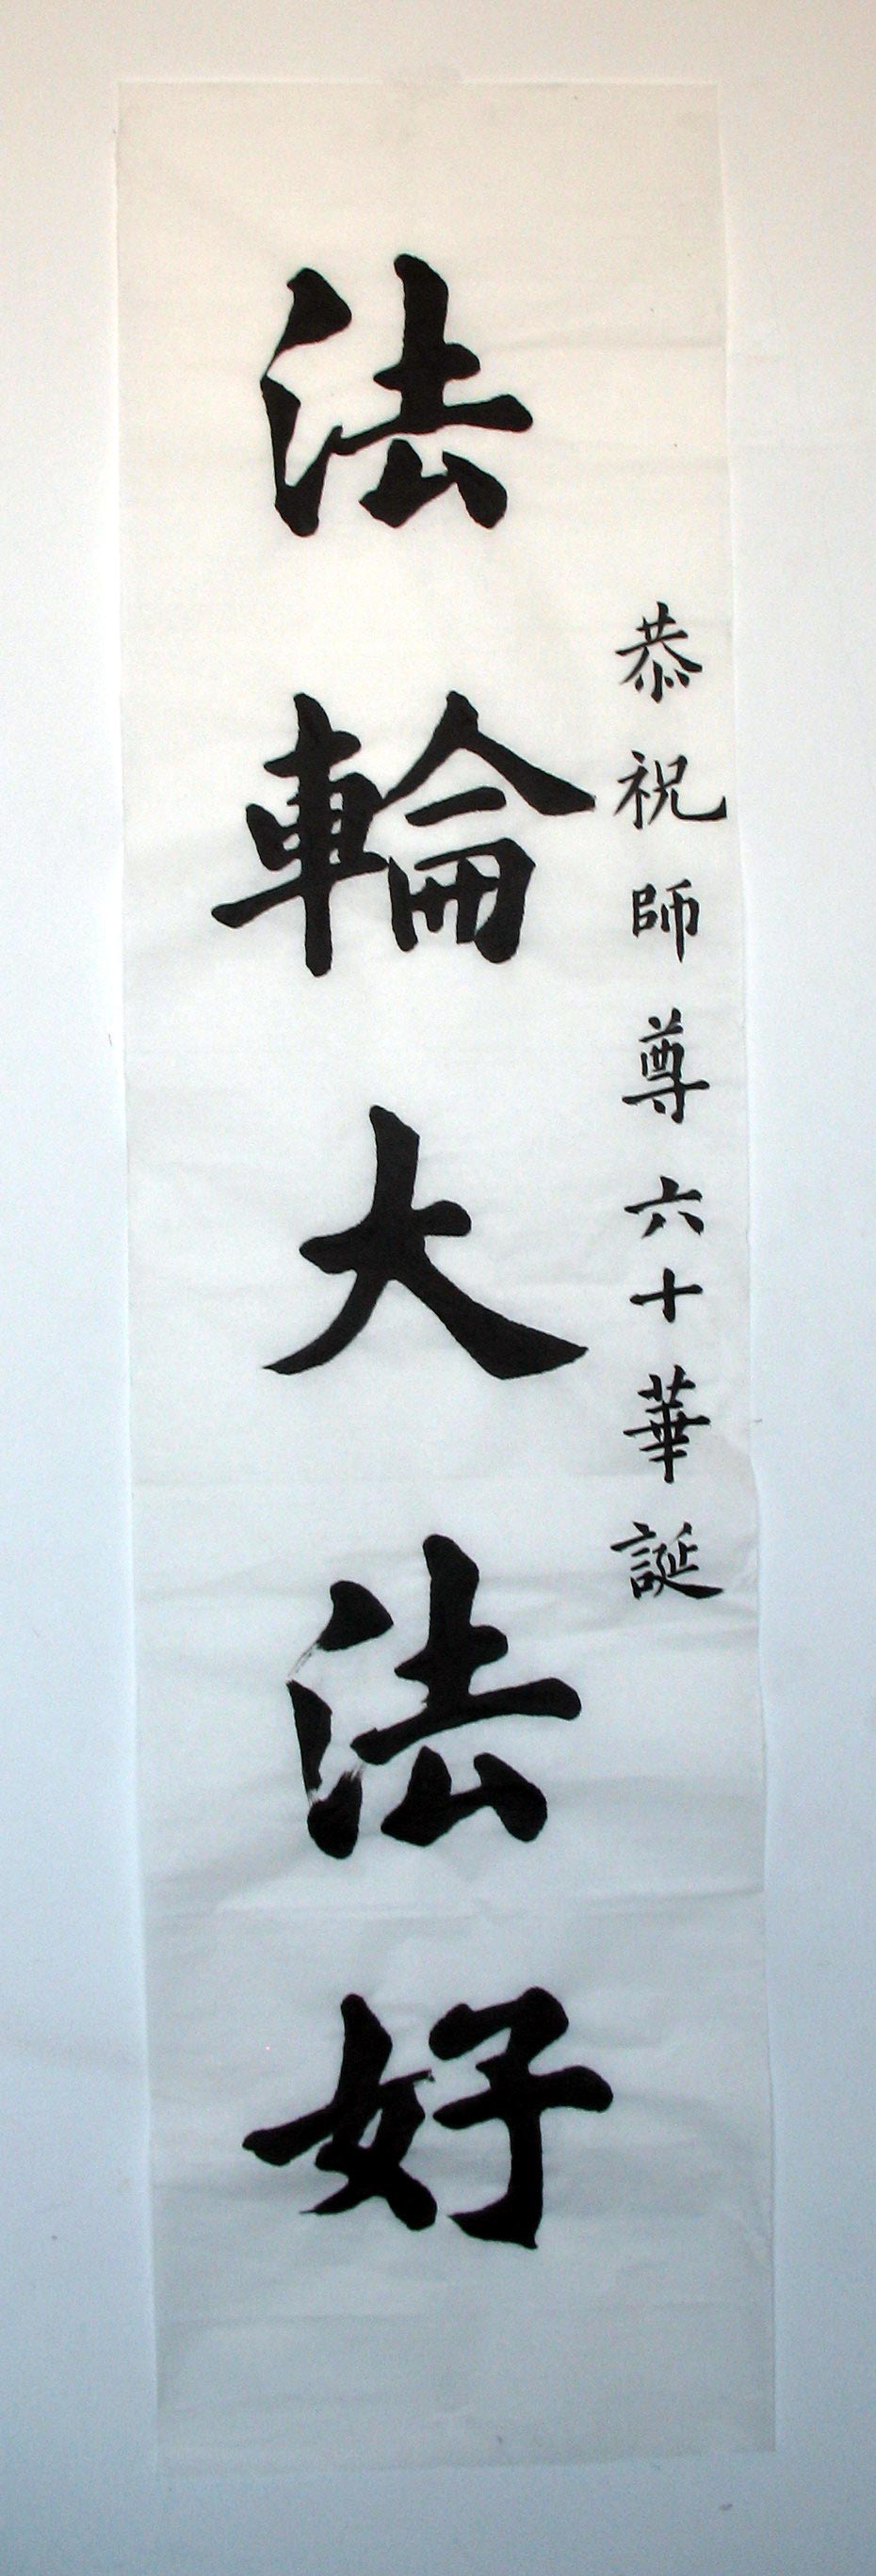 恭祝師尊六十華誕
法輪大法好